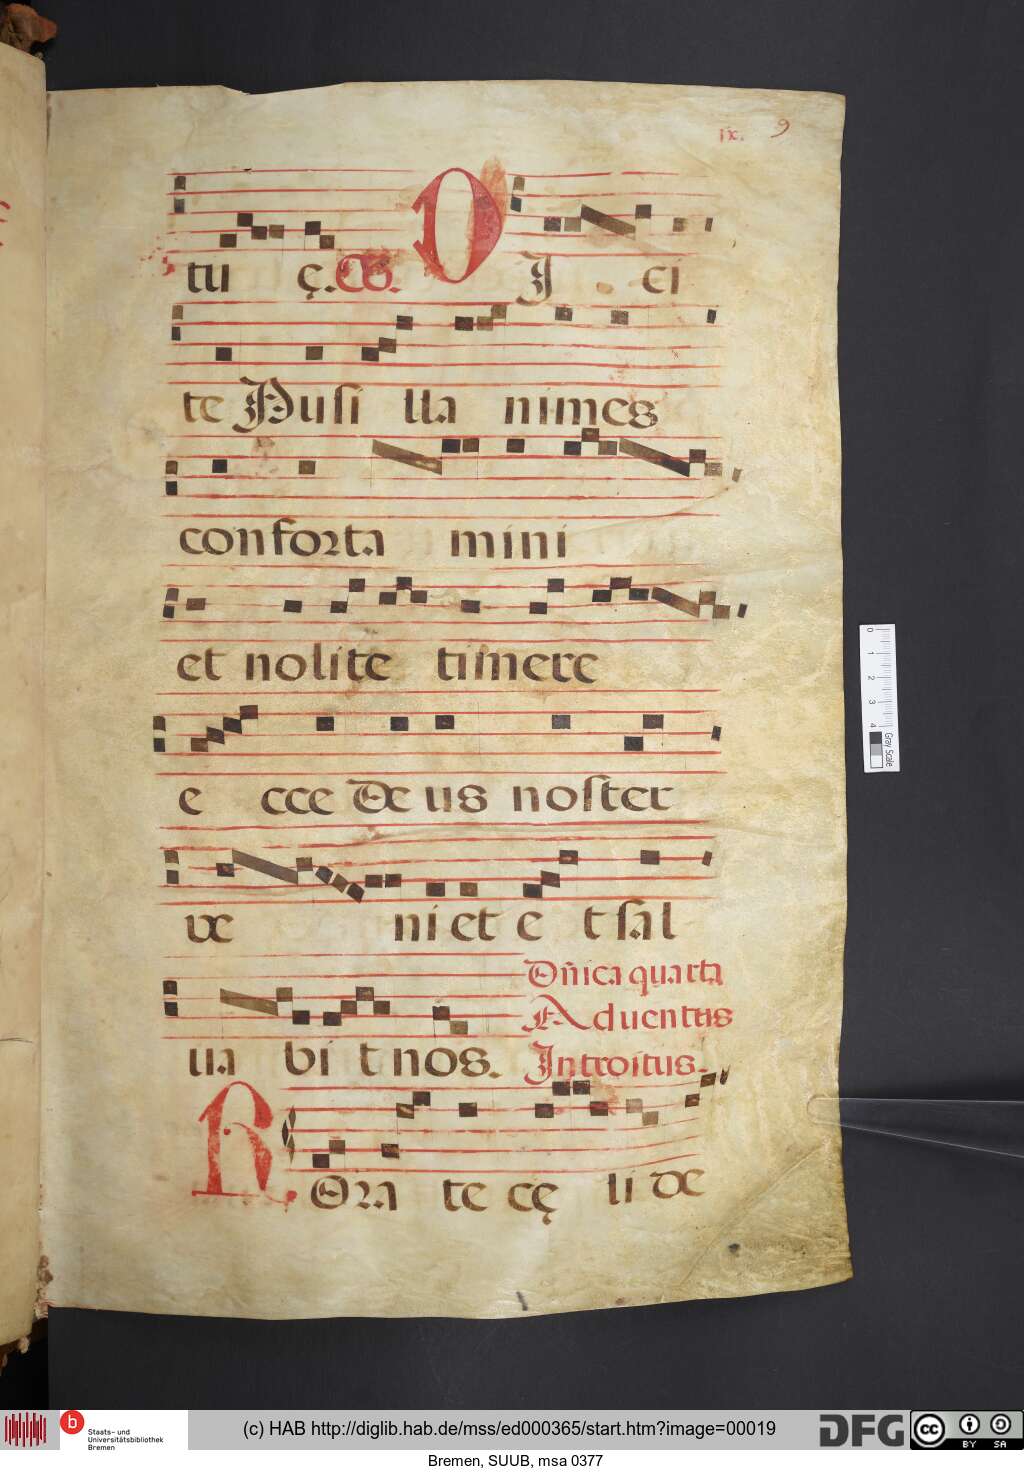 ix. 9
tu ę. Co. DI ci
te Pusi lla nimes
conforta mini
et nolite timere
e cce De us noster
ve ni et e t sal
Dñica quarta
Aduentus
ua bi t nos. Introitus.
ROra te cę li de
0 1 2 3 4
Gray Scale
b Staats- und
Universitätsbibliothek
Bremen
(c) HAB http://diglib.hab.de/mss/ed000365/start.htm?image=00019
DFG
cc BY SA
Bremen, SUUB, msa 0377